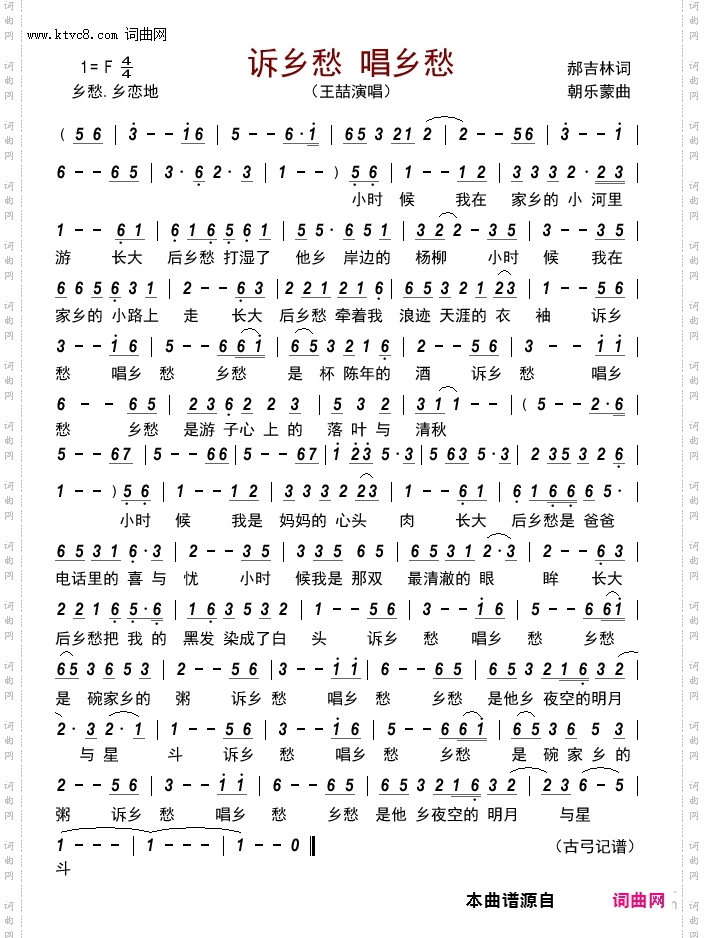 www.ktvc8.com 词曲网
诉乡愁 唱乡愁
1= F 4/4
郝吉林词
乡愁.乡恋地
（王喆演唱）
朝乐蒙曲
( 5 6 | 3 - - i 6 | 5 - - 6 · i | 6 5 3 2 1 2 | 2 - - 5 6 | 3 - - i |
6 - - 6 5 | 3 · 6 2 · 3 | 1 - - ) 5 6 | 1 - - 1 2 | 3 3 3 2 · 2 3 |
小时 候 我在 家乡的 小 河里
1 - - 6 1 | 6 1 6 5 6 1 | 5 5 · 6 5 1 | 3 2 2 - 3 5 | 3 - - 3 5 |
游 长大 后乡愁 打湿了 他乡 岸边的 杨柳 小时 候 我在
6 6 5 6 3 1 | 2 - - 6 3 | 2 2 1 2 2 1 6 | 6 5 3 2 1 2 3 | 1 - - 5 6 |
家乡的 小路上 走 长大 后乡愁 牵着我 浪迹 天涯的 衣 袖 诉乡
3 - - i 6 | 5 - - 6 6 i | 6 5 3 2 1 6 | 2 - - 5 6 | 3 - - i i |
愁 唱乡 愁 乡愁 是 杯 陈年的 酒 诉乡 愁 唱乡
6 - - 6 5 | 2 3 6 2 2 3 | 5 3 2 | 3 1 1 - - | ( 5 - - 2 · 6 |
愁 乡愁 是游 子心 上 的 落 叶 与 清秋
5 - - 6 7 | 5 - - 6 6 | 5 - - 6 7 | i 2 3 5 · 3 | 5 6 3 5 · 3 | 2 3 5 3 2 6 |
1 - - ) 5 6 | 1 - - 1 2 | 3 3 3 2 2 3 | 1 - - 6 1 | 6 1 6 6 6 5 · |
小时 候 我是 妈妈的 心头 肉 长大 后乡愁是 爸爸
6 5 3 1 6 · 3 | 2 - - 3 5 | 3 3 5 · 3 5 | 6 5 3 1 2 · 3 | 2 - - 6 3 |
电话里的 喜 与 忧 小时 候我是 那双 最清澈的 眼 眸 长大
2 2 1 6 5 · 6 | 1 6 3 5 3 2 | 1 - - 5 6 | 3 - - i 6 | 5 - - 6 6 i |
后乡愁把 我 的 黑发 染成了白 头 诉乡 愁 唱乡 愁 乡愁
6 5 3 6 5 3 | 2 - - 5 3 | 3 - - i i | 6 - - 6 5 | 6 5 3 2 1 6 3 2 |
是 碗家乡的 粥 诉乡 愁 唱乡 愁 乡愁 是他乡 夜空的明月
2 · 3 2 · 1 | 1 - - 5 6 | 3 - - i 6 | 5 - - 6 6 i | 6 5 3 6 5 3 |
与星 斗 诉乡 愁 唱乡 愁 乡愁 是 碗 家 乡 的
2 - - 5 6 | 3 - - i i | 6 - - 6 5 | 6 5 3 2 1 6 3 2 | 2 3 6 - 5 |
粥 诉乡 愁 唱乡 愁 乡愁 是他 乡夜空的 明月 与星
1 - - - | 1 - - - | 1 - - 0 ‖
（古弓记谱）
斗
本曲谱源自 词曲网